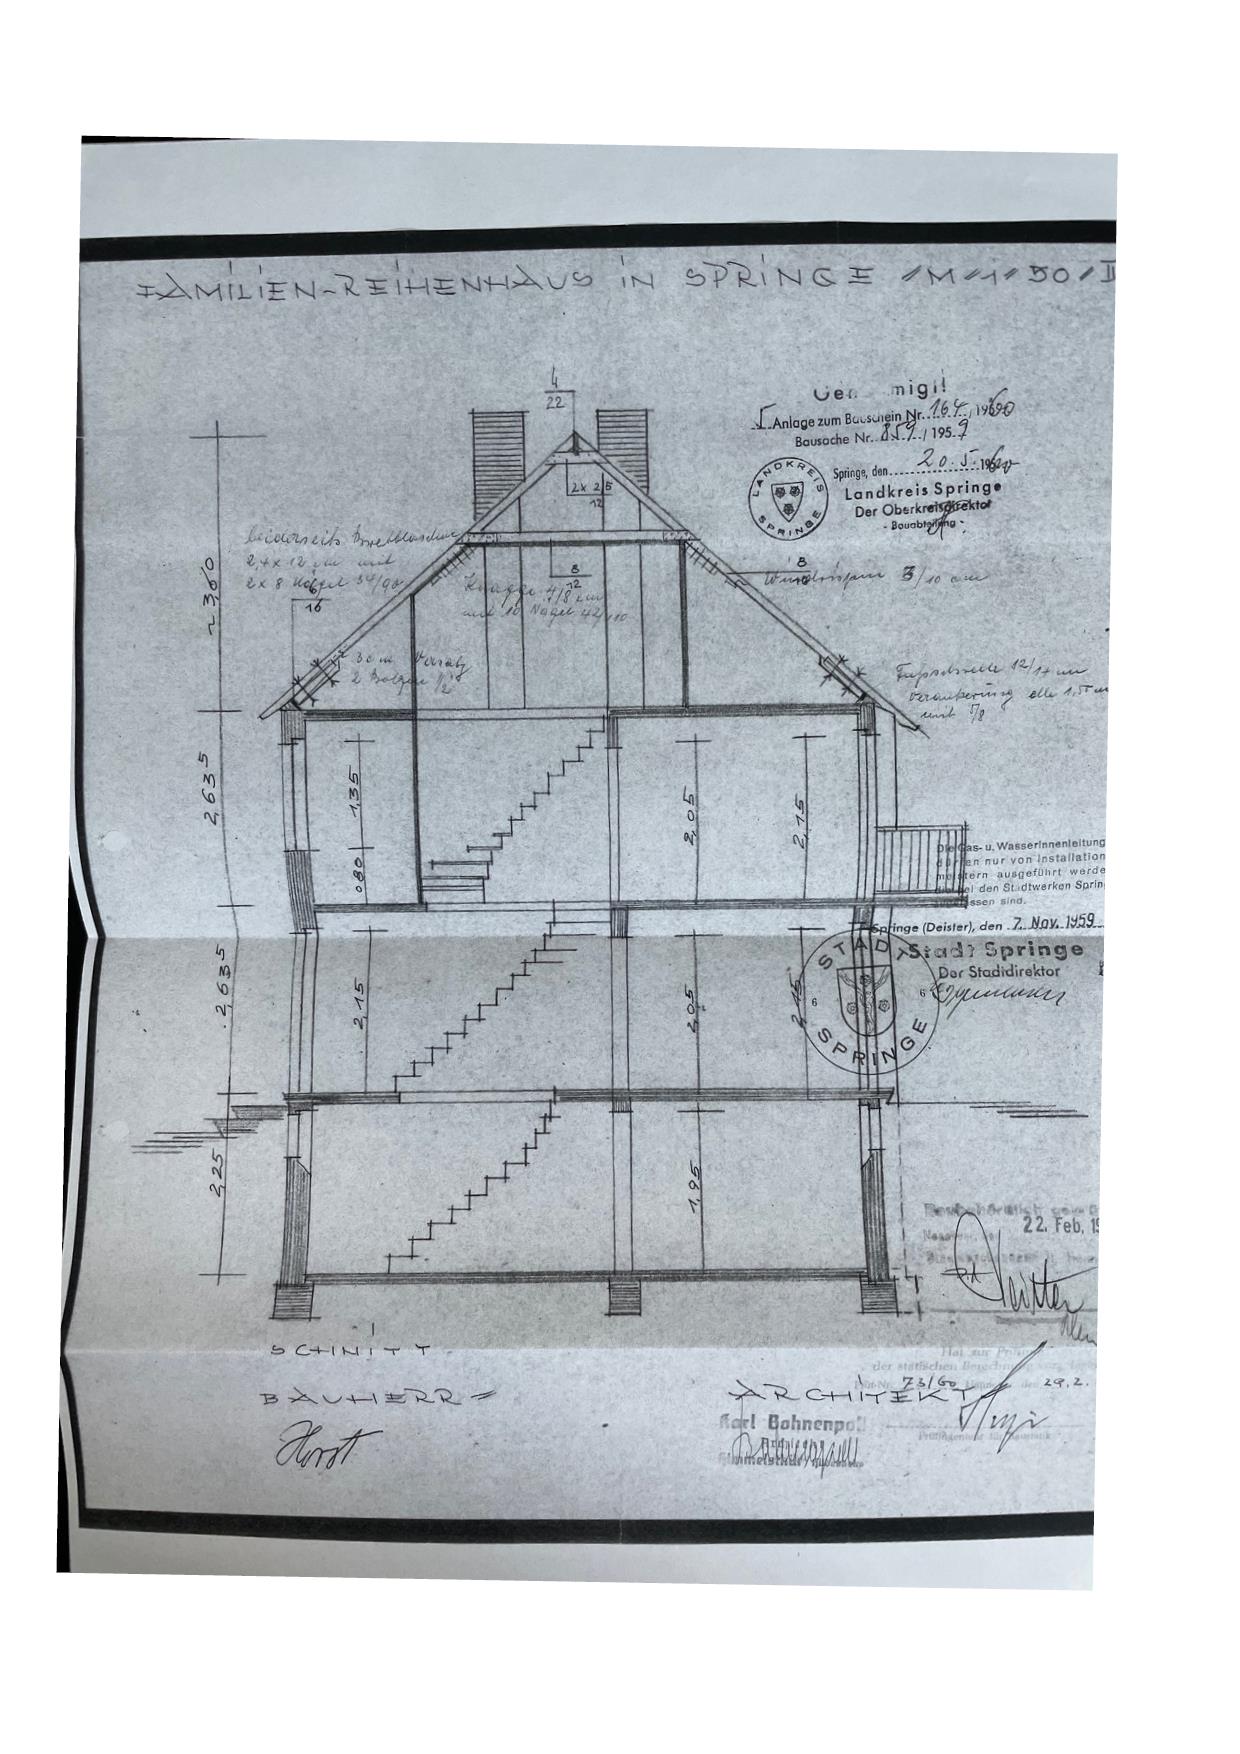 FAMILIEN-REIHENHAUS IN SPRINGE "M"1"50"
4
22
Anlage zum Bauschein Nr. 164 / 1960
Bausache Nr. 859 / 1959
Springe, den 20. 5. 1960
LANDKREIS SPRINGE
Landkreis Springe
Der Oberkreisdirektor
- Bauabteilung -
2 x 2,5
12
beiderseits
2,4 x 12 cm mit
2 x 8 Nägel 34/90
16
8
12
Knagge 4/8 cm
mit 10 Nägel 42/110
8
Windrispen 3/10 cm
3 cm Versatz
2 Bolzen 1/2"
Fußschwelle 12/14 cm
Verankerung alle 1,5 m
mit 5/8
~2,360
2,635
1,35
080
2,05
2,15
Die Gas- u. Wasserinnenleitung
dürfen nur von Installation
meistern ausgeführt werde
die bei den Stadtwerken Sprin
zugelassen sind.
Springe (Deister), den 7. Nov. 1959
Stadt Springe
Der Stadtdirektor
STADT SPRINGE
6 6
2,635
2,15
2,05
2,15
2,25
1,95
22. Feb. 19
SCHNITT
Hat zur Prüfung
der statischen Berechnung
73/60
29.2.
BAUHERR =
ARCHITEKT
Horst
Karl Bohnenpoll
Prüfingenieur für Baustatik